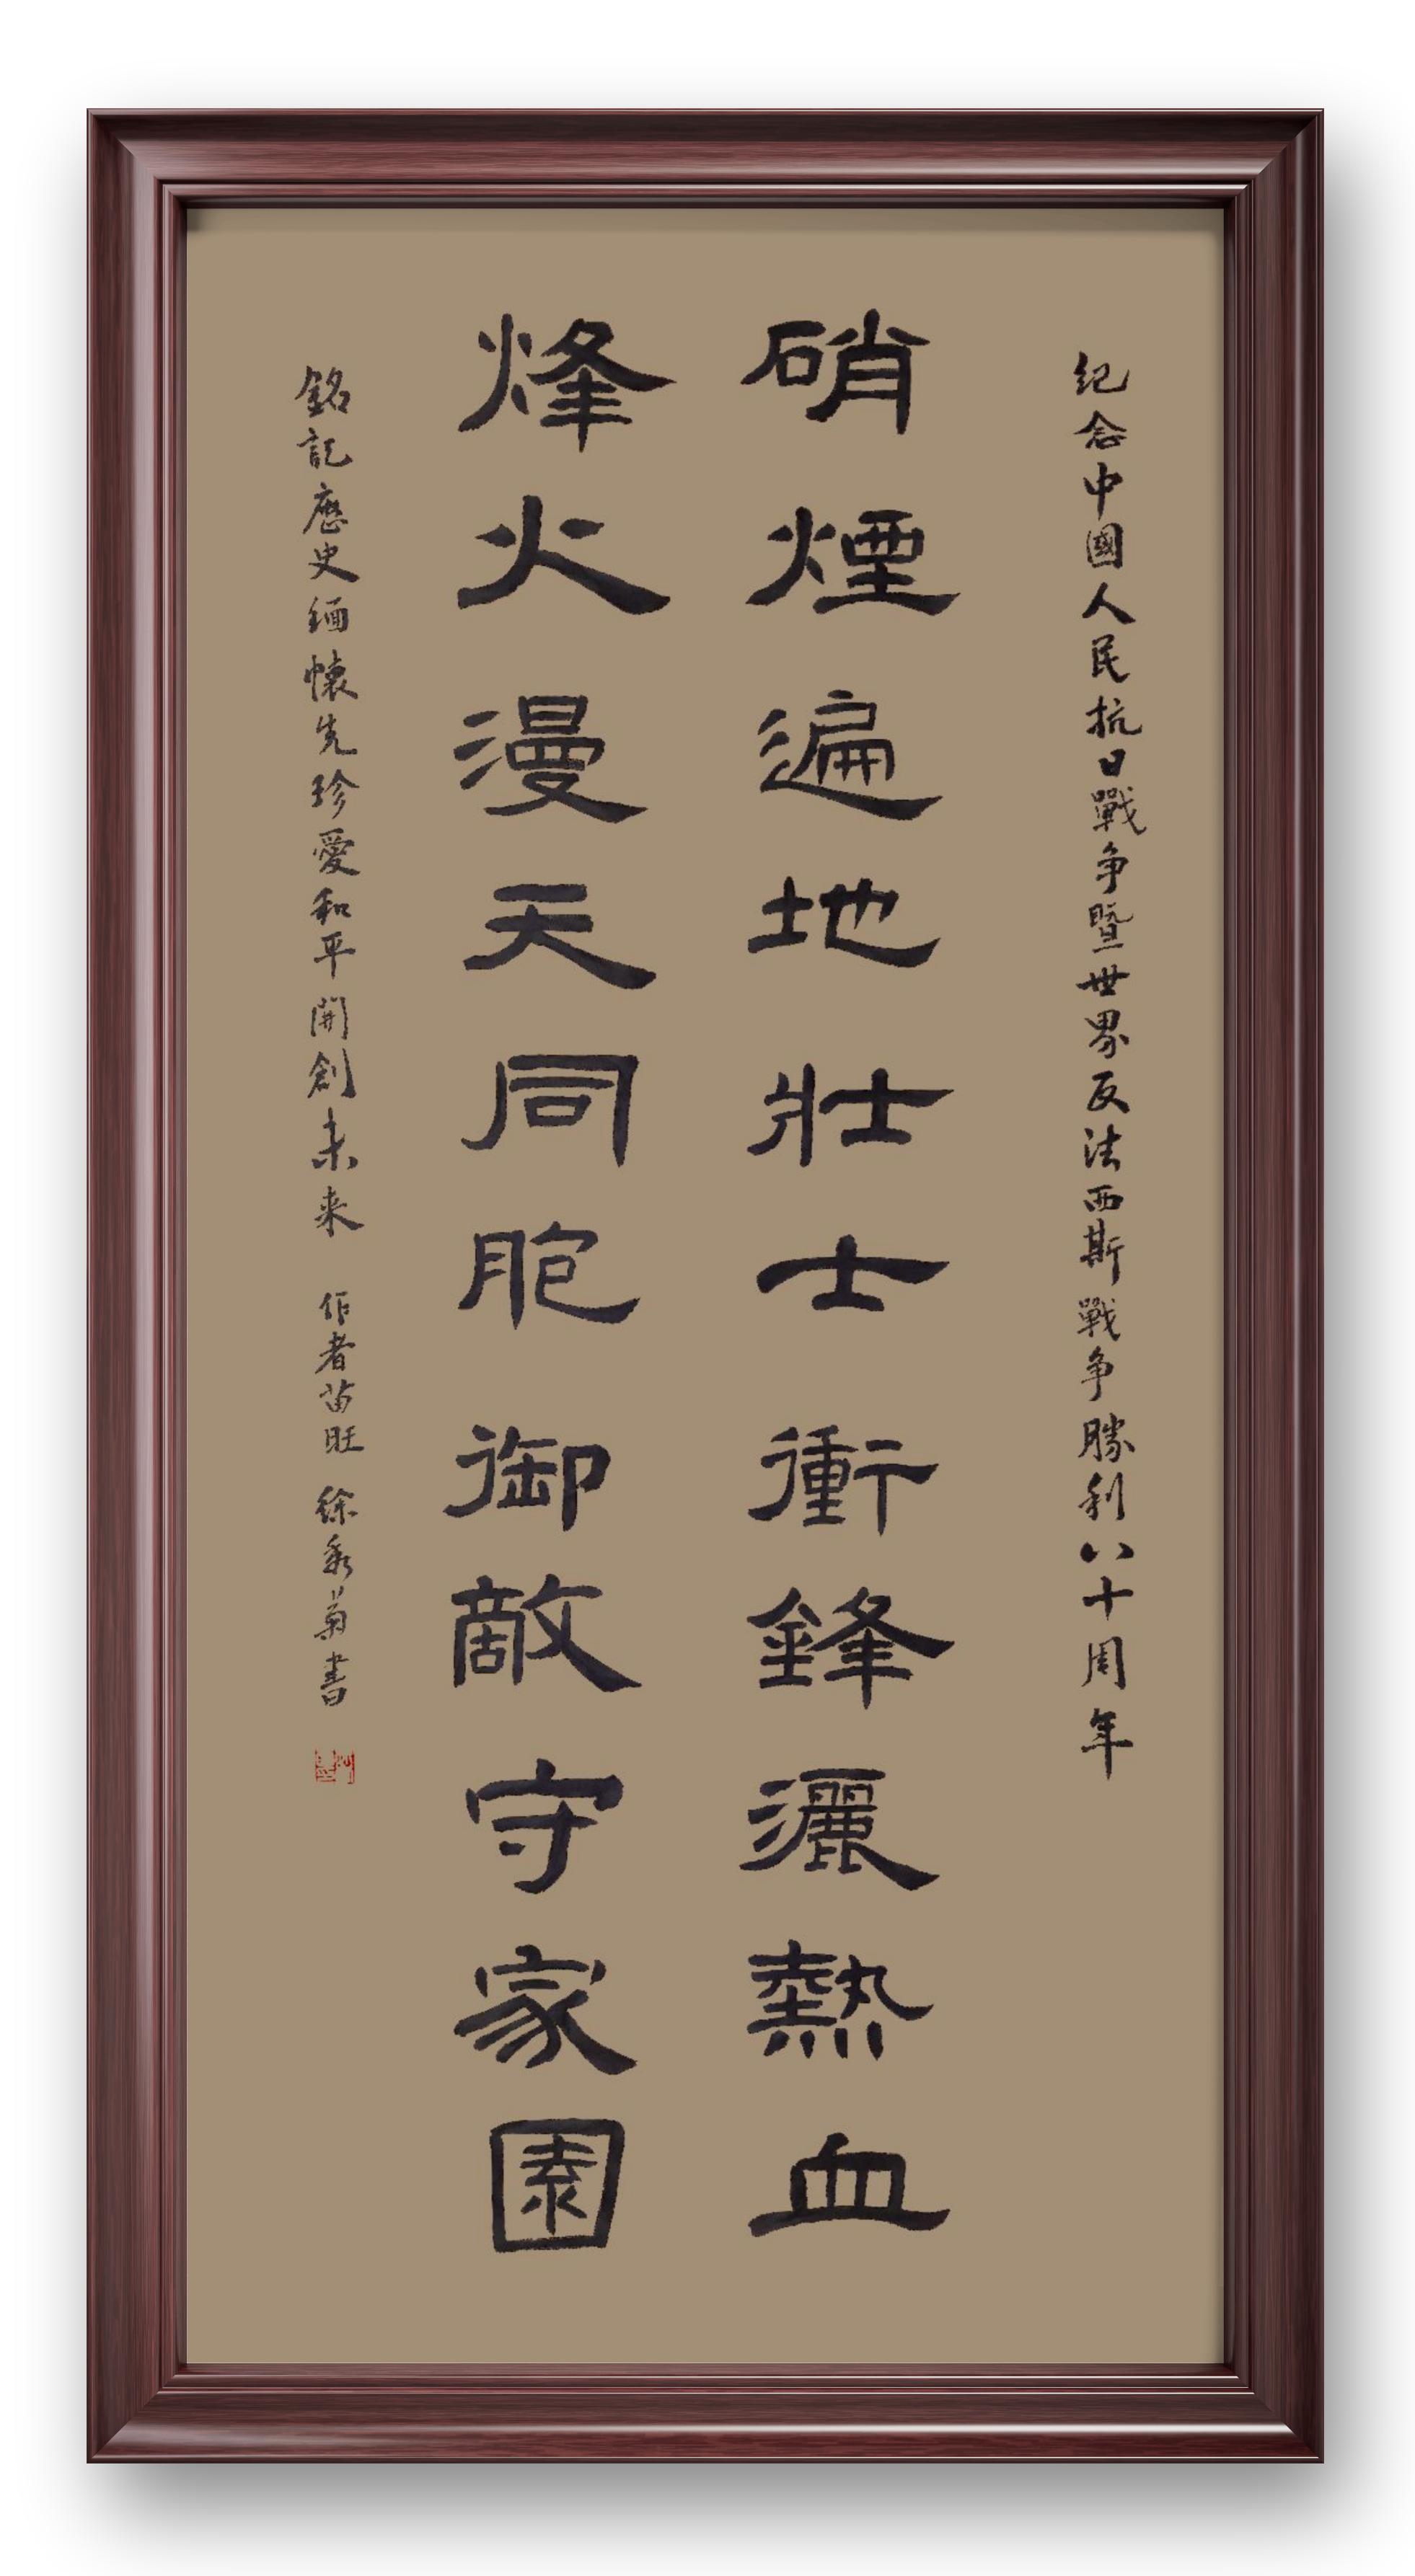 纪念中國人民抗日戰争暨世界反法西斯戰争勝利八十周年
硝煙遍地壯士衝鋒灑熱血
烽火漫天同胞御敵守家園
銘記歷史緬懷先珍愛和平開創未来 作者苗旺 徐秀菊書